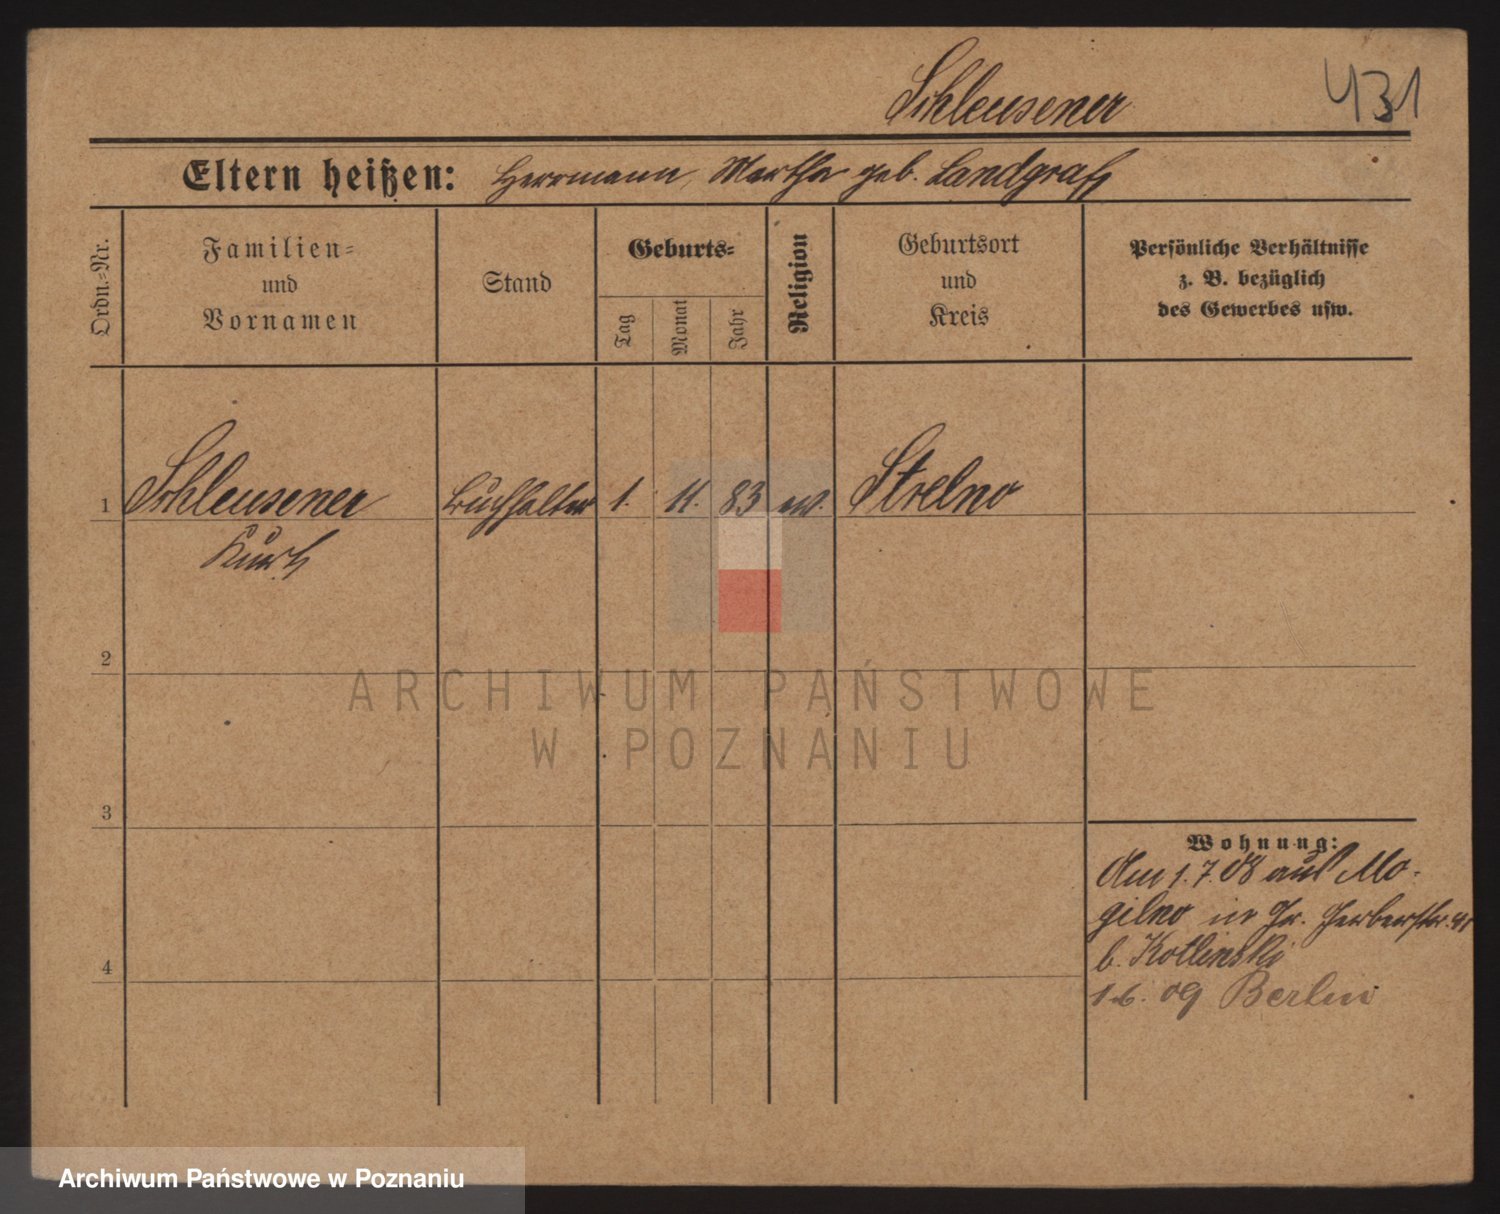 Schleusener
431
Eltern heißen: Herrmann, Martha geb. Landgraf
Ordn.=Nr.
Familien=
und
Vornamen
Stand
Geburts=
Tag
Monat
Jahr
Religion
Geburtsort
und
Kreis
Persönliche Verhältnisse
z. B. bezüglich
des Gewerbes usw.
1 Schleusener Buchhalter 1. 11. 83 ev. Strelno
Kurt
2
ARCHIWUM PAŃSTWOWE
W POZNANIU
3
Wohnung:
Am 1.7.08 aus Mo-
gilno in Gr. Gerberstr. 41
4
b. Kotlinski
1.6.09 Berlin
Archiwum Państwowe w Poznaniu